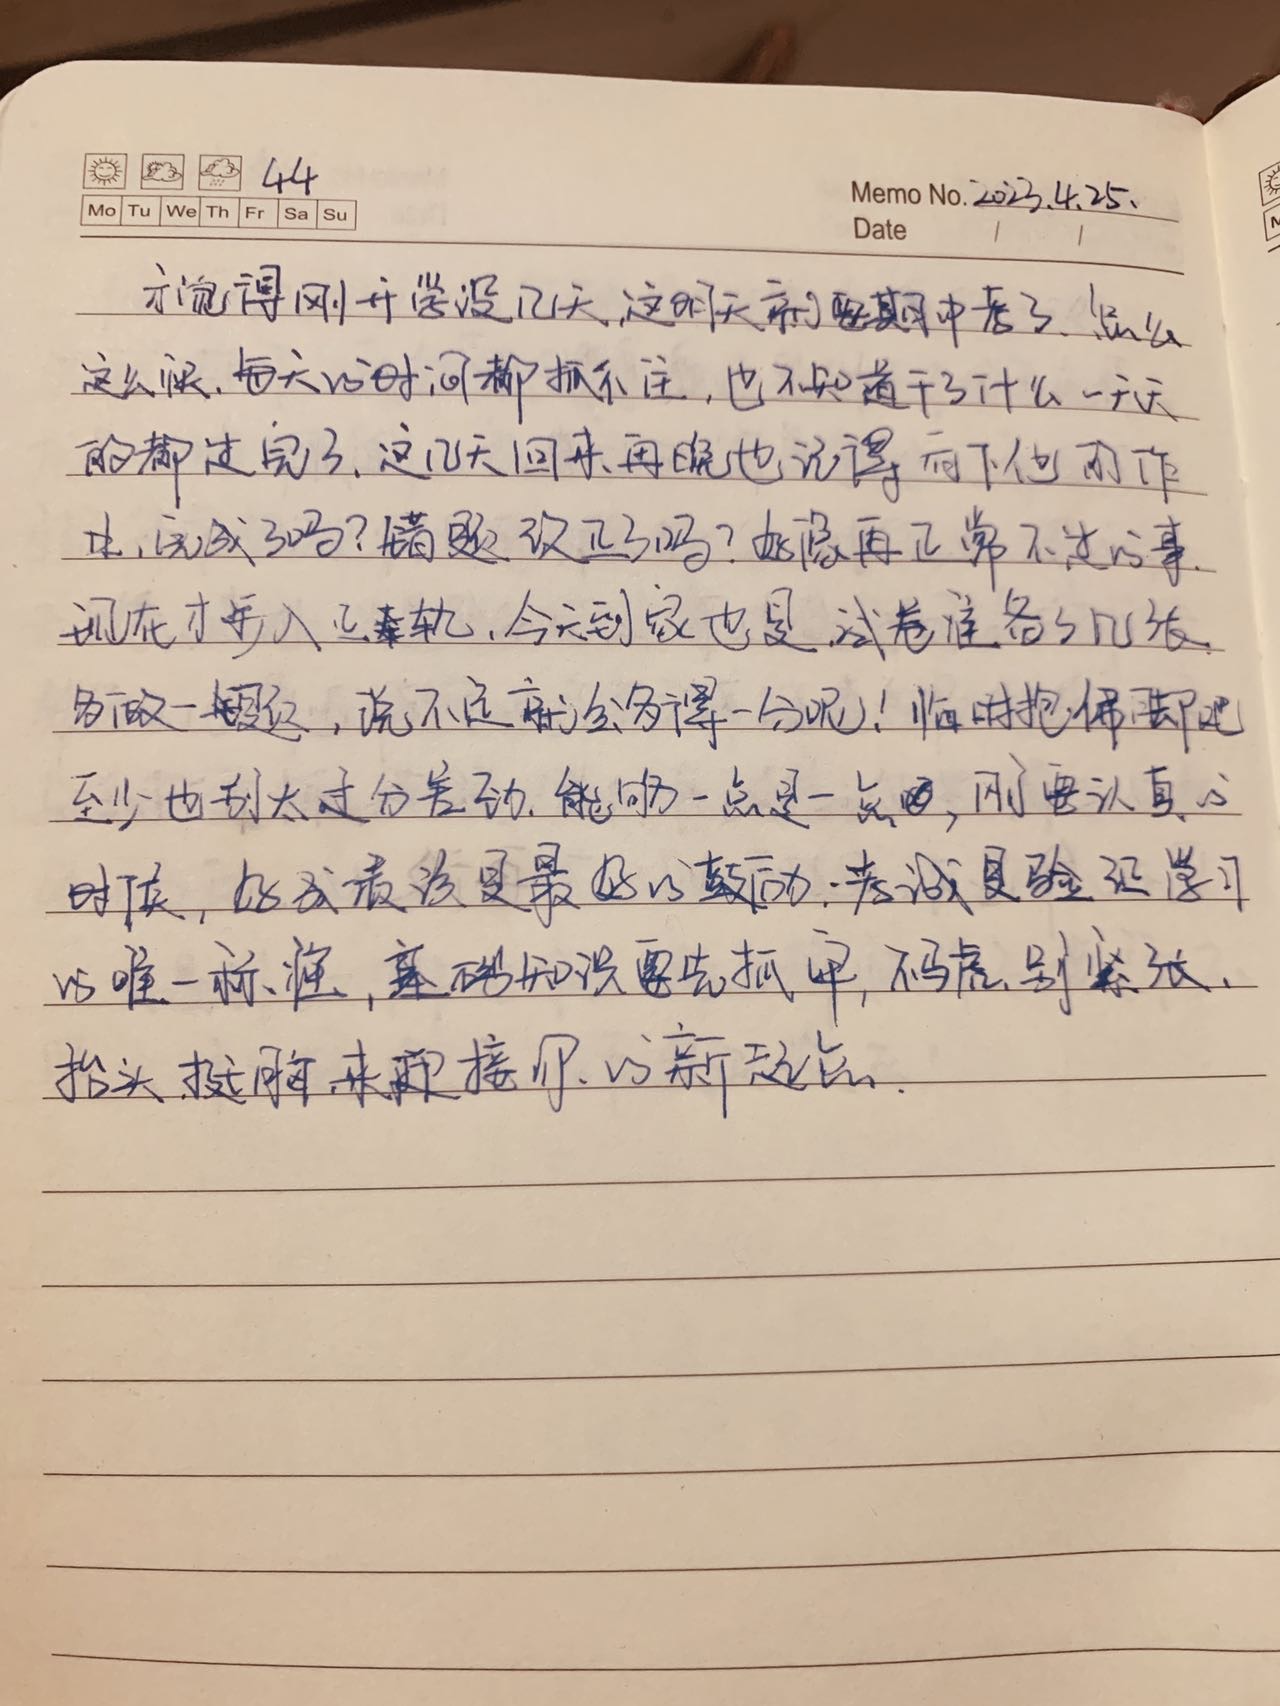 44
Mo Tu We Th Fr Sa Su
Memo No. 2023.4.25.
Date / /
才觉得刚开学没几天,这明天就要期中考了、怎么
这么快、每天的时间都抓不住,也不知道干了什么一天天
的都过完了、这几天回来再晚也记得问下他的作
业、完成了吗?错题改正了吗?好像再正常不过的事.
现在才步入正轨、今天到家也是、试卷准备了几张、
多做一题,说不定就会多得一分呢!临时抱佛脚吧
至少也别太过分差劲、能多一点是一点吧,刚要认真的
时候,好成 该是最好的鼓励、考试是验证学习
的唯一标准,基础知识要先抓牢,不马虎、别紧张、
抬头挺胸来迎接 的新起点.